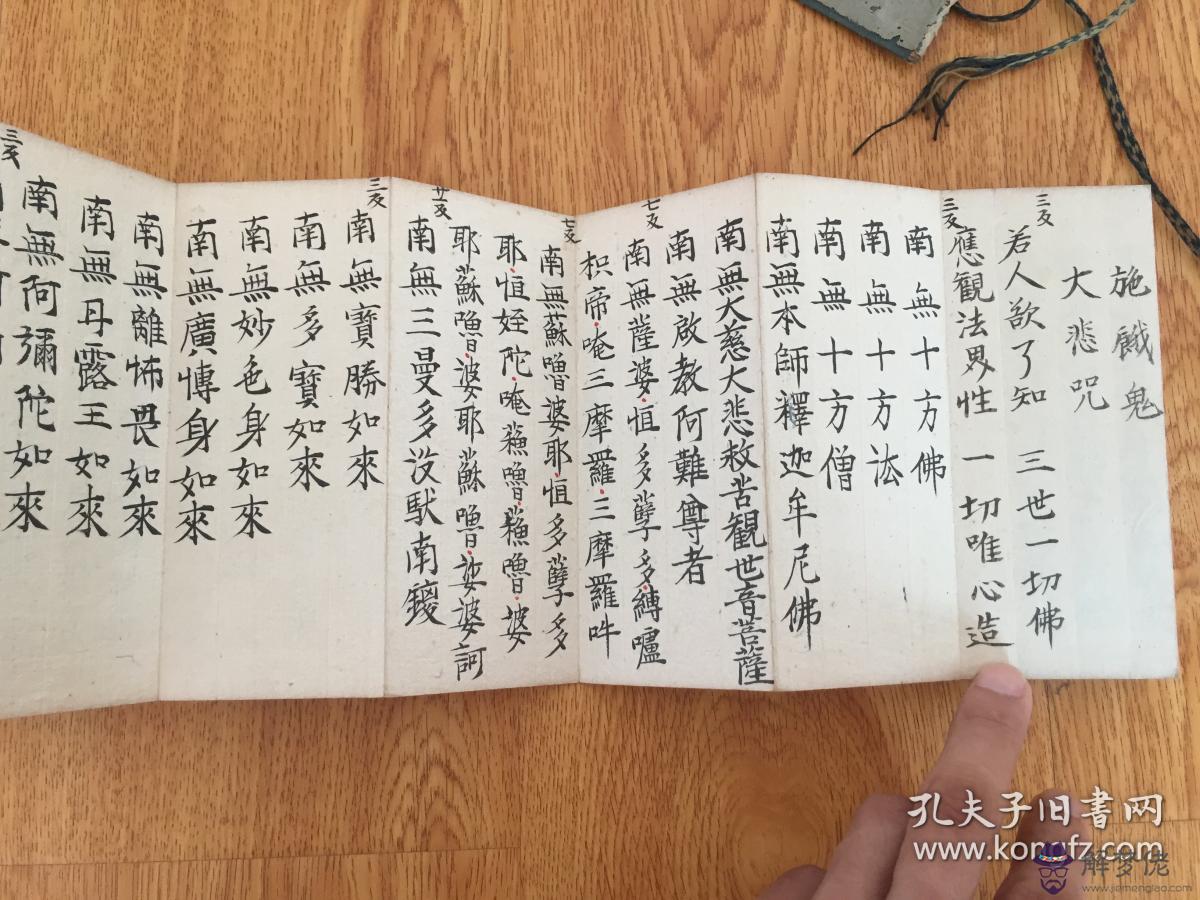 施餓鬼
大悲咒
三反
若人欲了知 三世一切佛
三反
應観法界性 一切唯心造
南無十方佛
南無十方法
南無十方僧
南無本師釋迦牟尼佛
南無大慈大悲救苦観世音菩薩
南無啟教阿難尊者
七反
南無薩婆恒多孽多縛嚧
枳帝唵三摩羅三摩羅吽
七反
南無蘇嚕婆耶恒多孽多
耶恒姪陀唵蘓嚕蘓嚕婆
耶蘇嚕婆耶蘇嚕娑婆訶
廿一反
南無三曼多沒馱南鑁
三反
南無寶勝如來
南無多寶如來
南無妙色身如來
南無廣愽身如來
南無離怖畏如來
南無丹露王如來
南無阿彌陀如來
三反
孔夫子旧书网
www.kongfz.com
解梦佬
www.jiemenglao.com